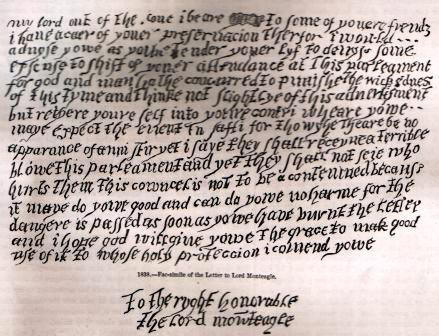 my lord out of the love i beare to some of youere frends
i have a caer of youer preservacion therfor i would
advyse yowe as yowe tender youer lyf to devyse some
exscuse to shift of youer attendance at this parleament
for god and man hathe concurred to punishe the wickednes
of this tyme and thinke not slightlye of this advertisment
but retyere youre self into youre contri wheare yowe
maye expect the event in safti for thowghe theare be no
apparance of anni stir yet i saye they shall receyve a terrible
blowe this parleament and yet they shall not seie who
hurts them this cowncel is not to be contemned because
it maye do yowe good and can do yowe no harme for the
dangere is passed as soon as yowe have burnt the letter
and i hope god will give yowe the grace to mak good
use of it to whose holy proteccion i comend yowe
1838.—Fac-simile of the Letter to Lord Monteagle.
To the ryght honorable
the lord monteagle